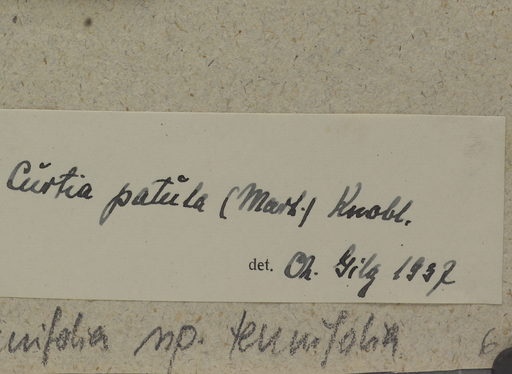 Cŭrtia patŭla (Mart.) Knobl.
det. Ch. Gilg 1937
nuifolia sp. tenuifolia 6